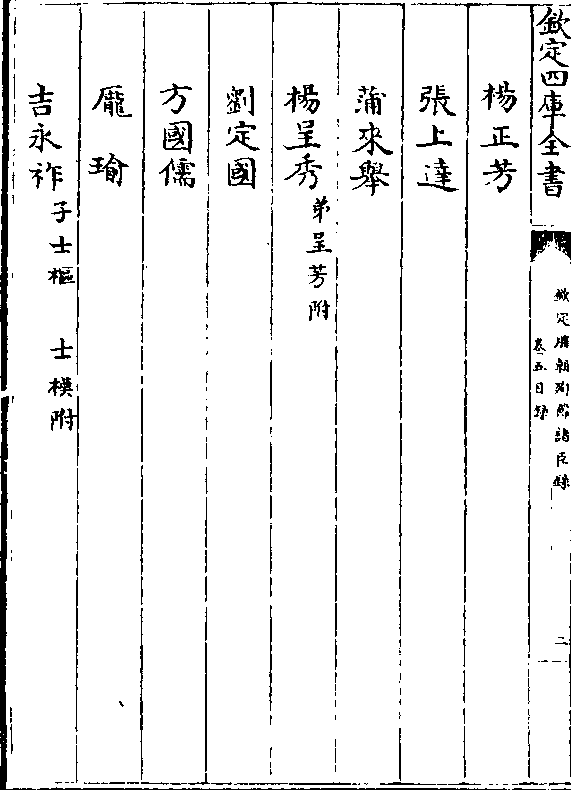 欽定四庫全書
欽定勝朝殉節諸臣錄
卷五目錄
二
楊正芳
張上達
蒲來舉
楊呈秀 弟呈芳附
劉定國
方國儒
龐瑜
吉永祚 子士樞 士模附